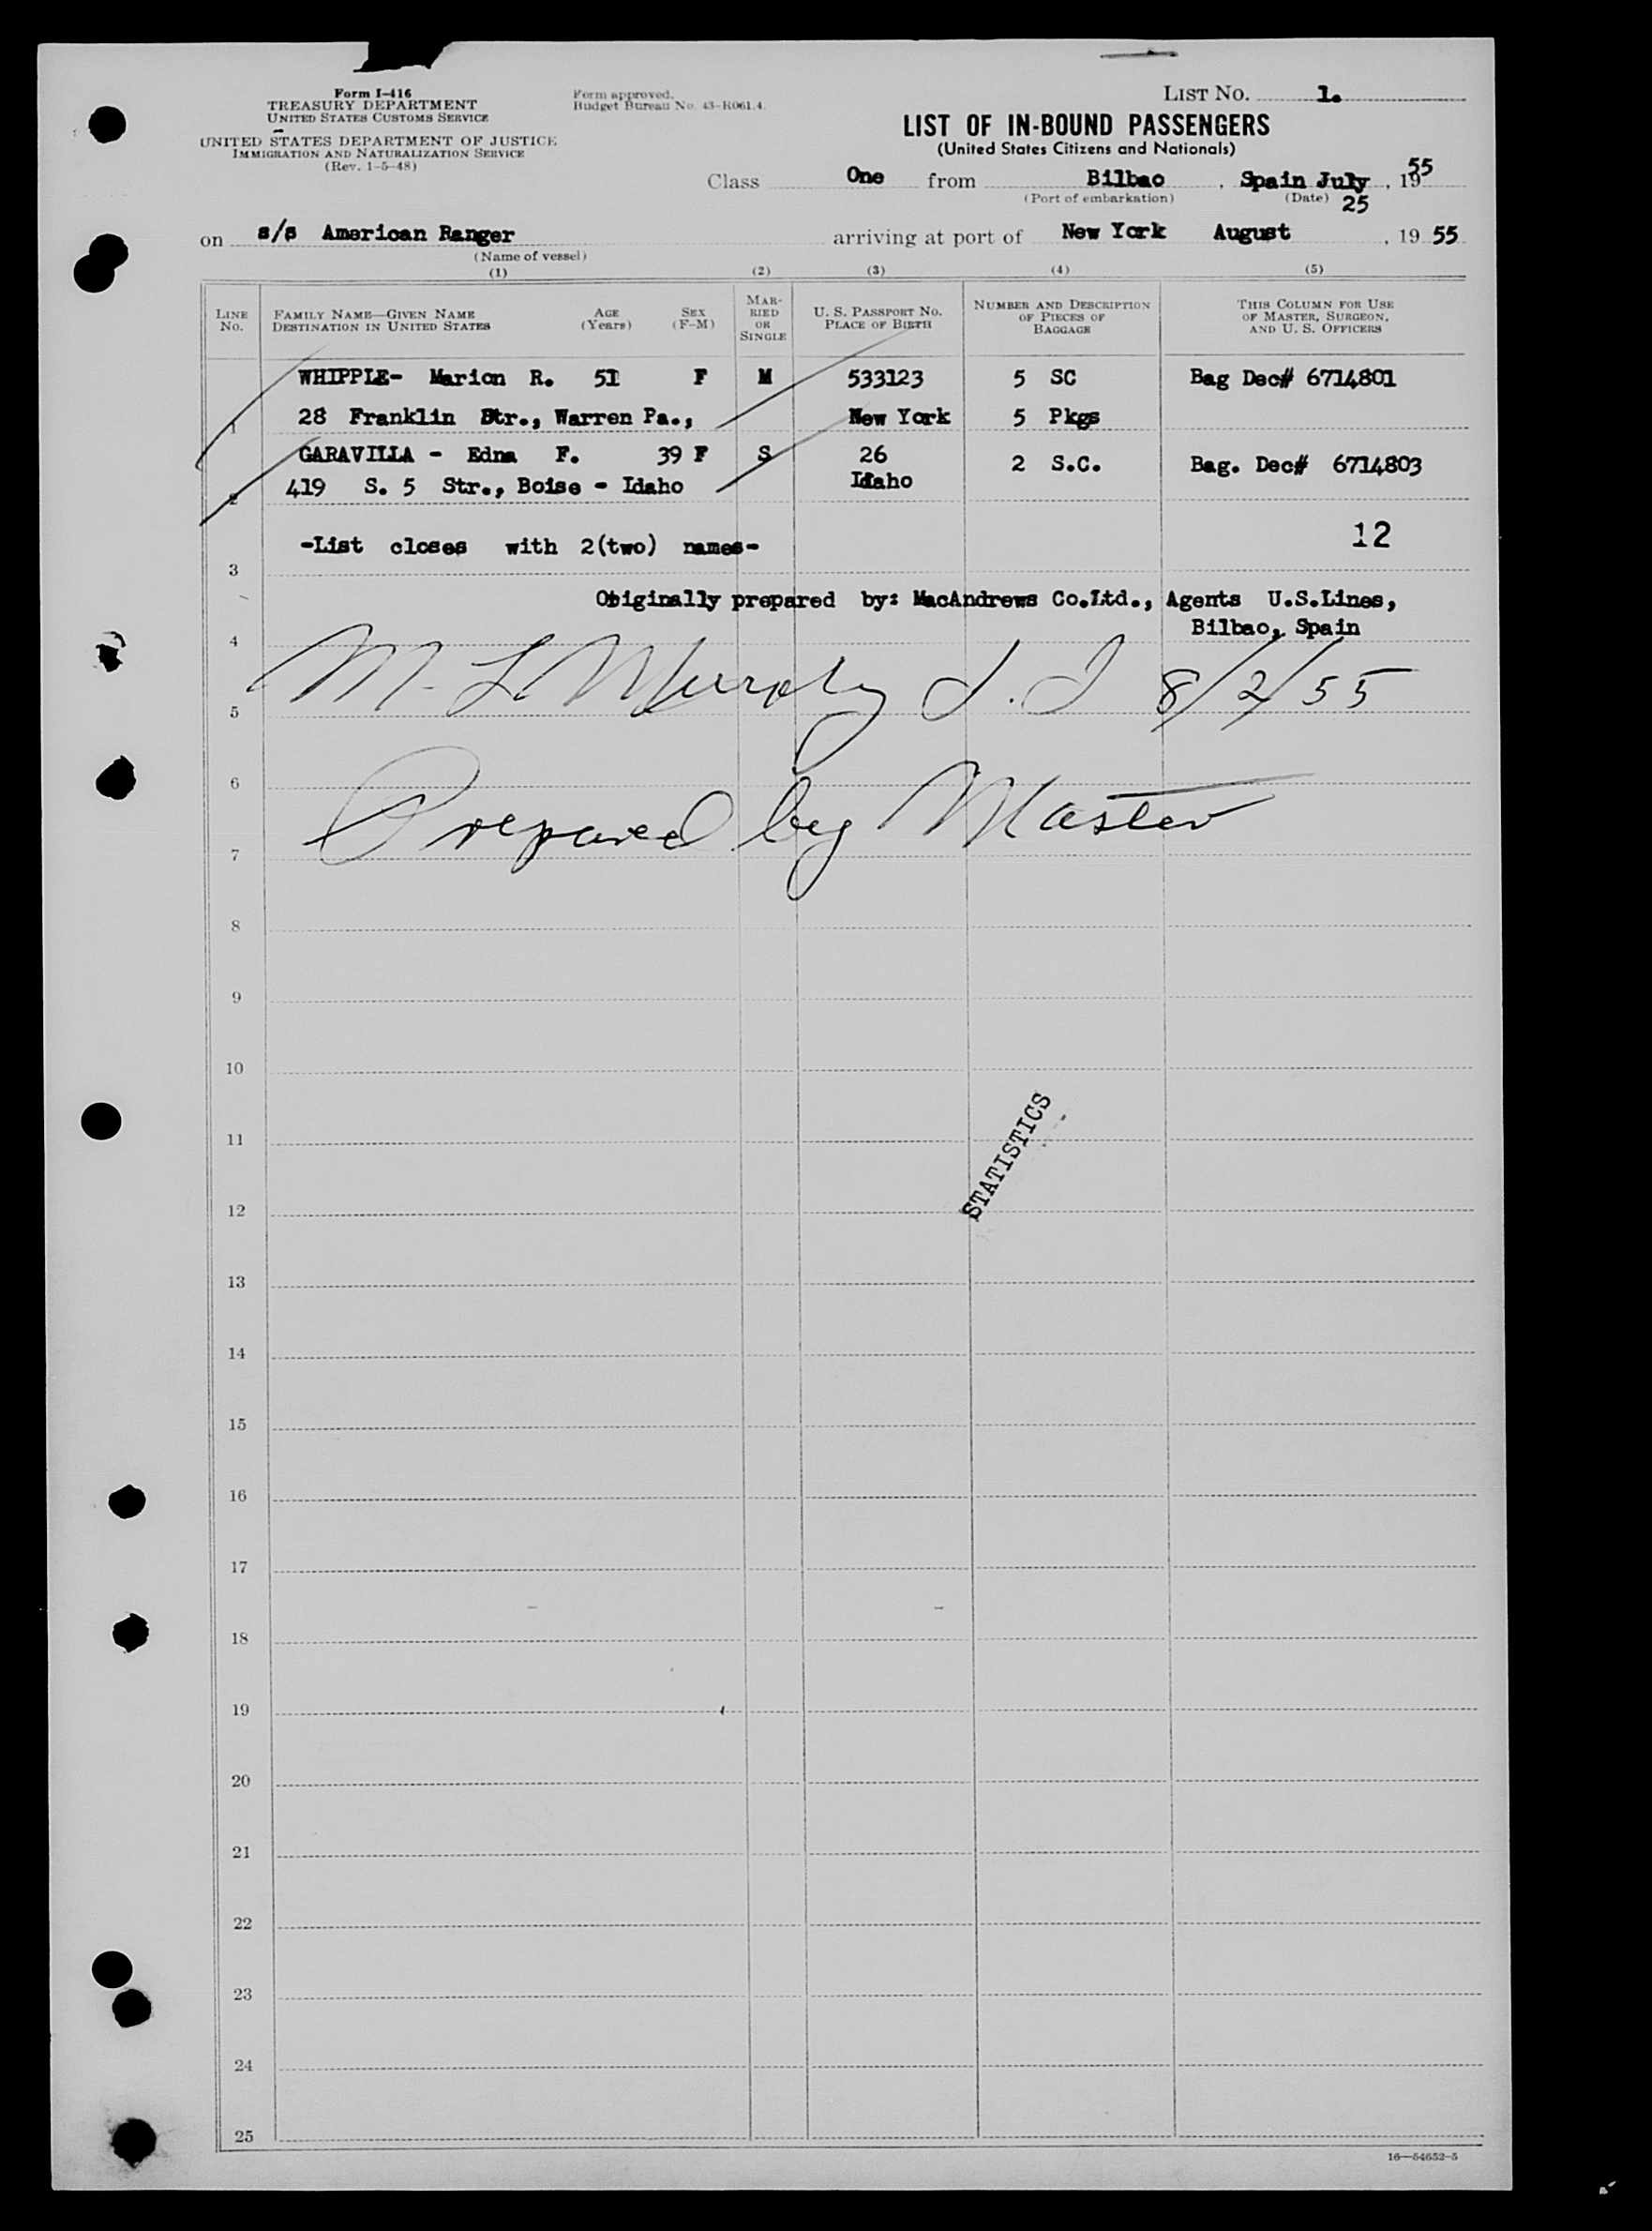 Form I-416
TREASURY DEPARTMENT
UNITED STATES CUSTOMS SERVICE
UNITED STATES DEPARTMENT OF JUSTICE
IMMIGRATION AND NATURALIZATION SERVICE
(Rev. 1-5-48)
Form approved.
Budget Bureau No. 43-R061.4.
LIST NO. 1.
LIST OF IN-BOUND PASSENGERS
(United States Citizens and Nationals)
Class One from Bilbao, Spain July 25, 1955
(Port of embarkation) (Date)
on s/s American Ranger arriving at port of New York August, 19 55
(Name of vessel)
(1) (2) (3) (4) (5)
LINE NO. FAMILY NAME—GIVEN NAME DESTINATION IN UNITED STATES AGE (Years) SEX (F-M) MARRIED OR SINGLE U. S. PASSPORT NO. PLACE OF BIRTH NUMBER AND DESCRIPTION OF PIECES OF BAGGAGE THIS COLUMN FOR USE OF MASTER, SURGEON, AND U. S. OFFICERS
WHIPPLE- Marion R. 51 F M 533123 5 SC Bag Dec# 6714801
1 28 Franklin Str., Warren Pa., New York 5 Pkgs
GARAVILLA - Edna F. 39 F S 26 2 S.C. Bag. Dec# 6714803
2 419 S. 5 Str., Boise - Idaho Idaho
12
-List closes with 2(two) names-
3
Originally prepared by: MacAndrews Co.Ltd., Agents U.S.Lines,
Bilbao, Spain
4
M. L. Murphy I. I 8/2/55
5
6
Prepared by Master
7
8
9
10
11
STATISTICS
12
13
14
15
16
17
18
19
20
21
22
23
24
25
16—54652-5